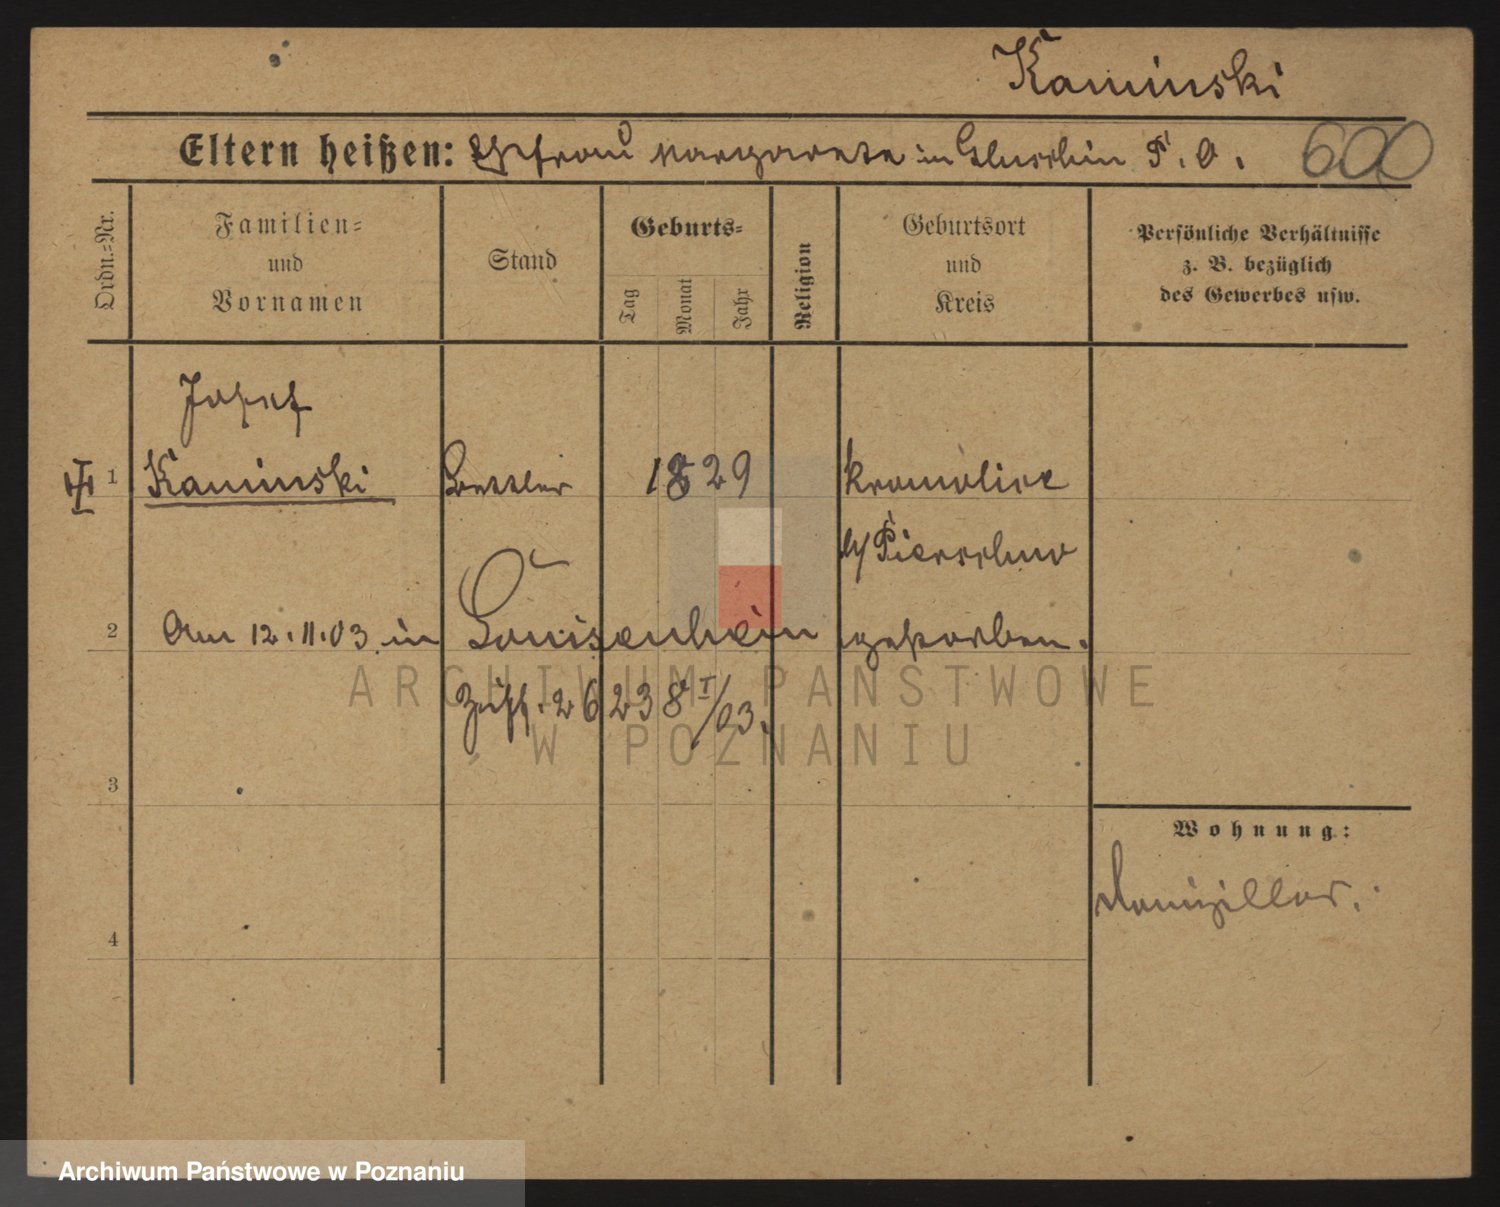 Kaminski
Eltern heißen: Ehefrau Margareta in Gluschin P. O. 600
Ordn.-Nr.
Familien-
und
Vornamen
Stand
Geburts-
Tag
Monat
Jahr
Religion
Geburtsort
und
Kreis
Persönliche Verhältnisse
z. B. bezüglich
des Gewerbes usw.
Josef
1 Kaminski Bettler 1829 Kromolice
b/ Pierschno
2 Am 12.11.03. in Louisenhein gestorben.
ARCHIWUM PAŃSTWOWE
2623 8 I/03.
W POZNANIU
3
Wohnung:
4
Archiwum Państwowe w Poznaniu